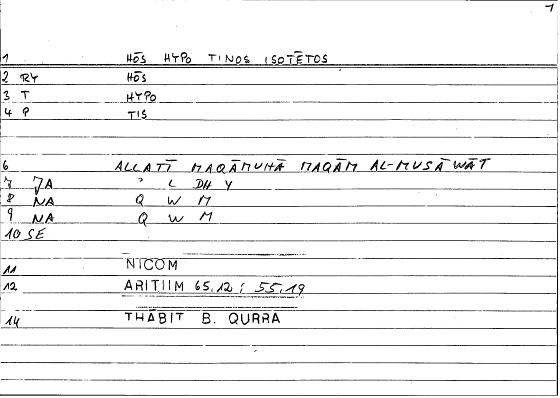 1
1 HŌS HYPO TINOS ISOTĒTOS
2 RY HŌS
3 T HYPO
4 P TIS
6 ALLATĪ MAQĀMUHĀ MAQĀM AL-MUSĀWĀT
7 JA ʾ L DH Y
8 NA Q W M
9 NA Q W M
10 SE
11 NICOM
12 ARITIIM 65,12 ; 55,19
14 THĀBIT B. QURRA